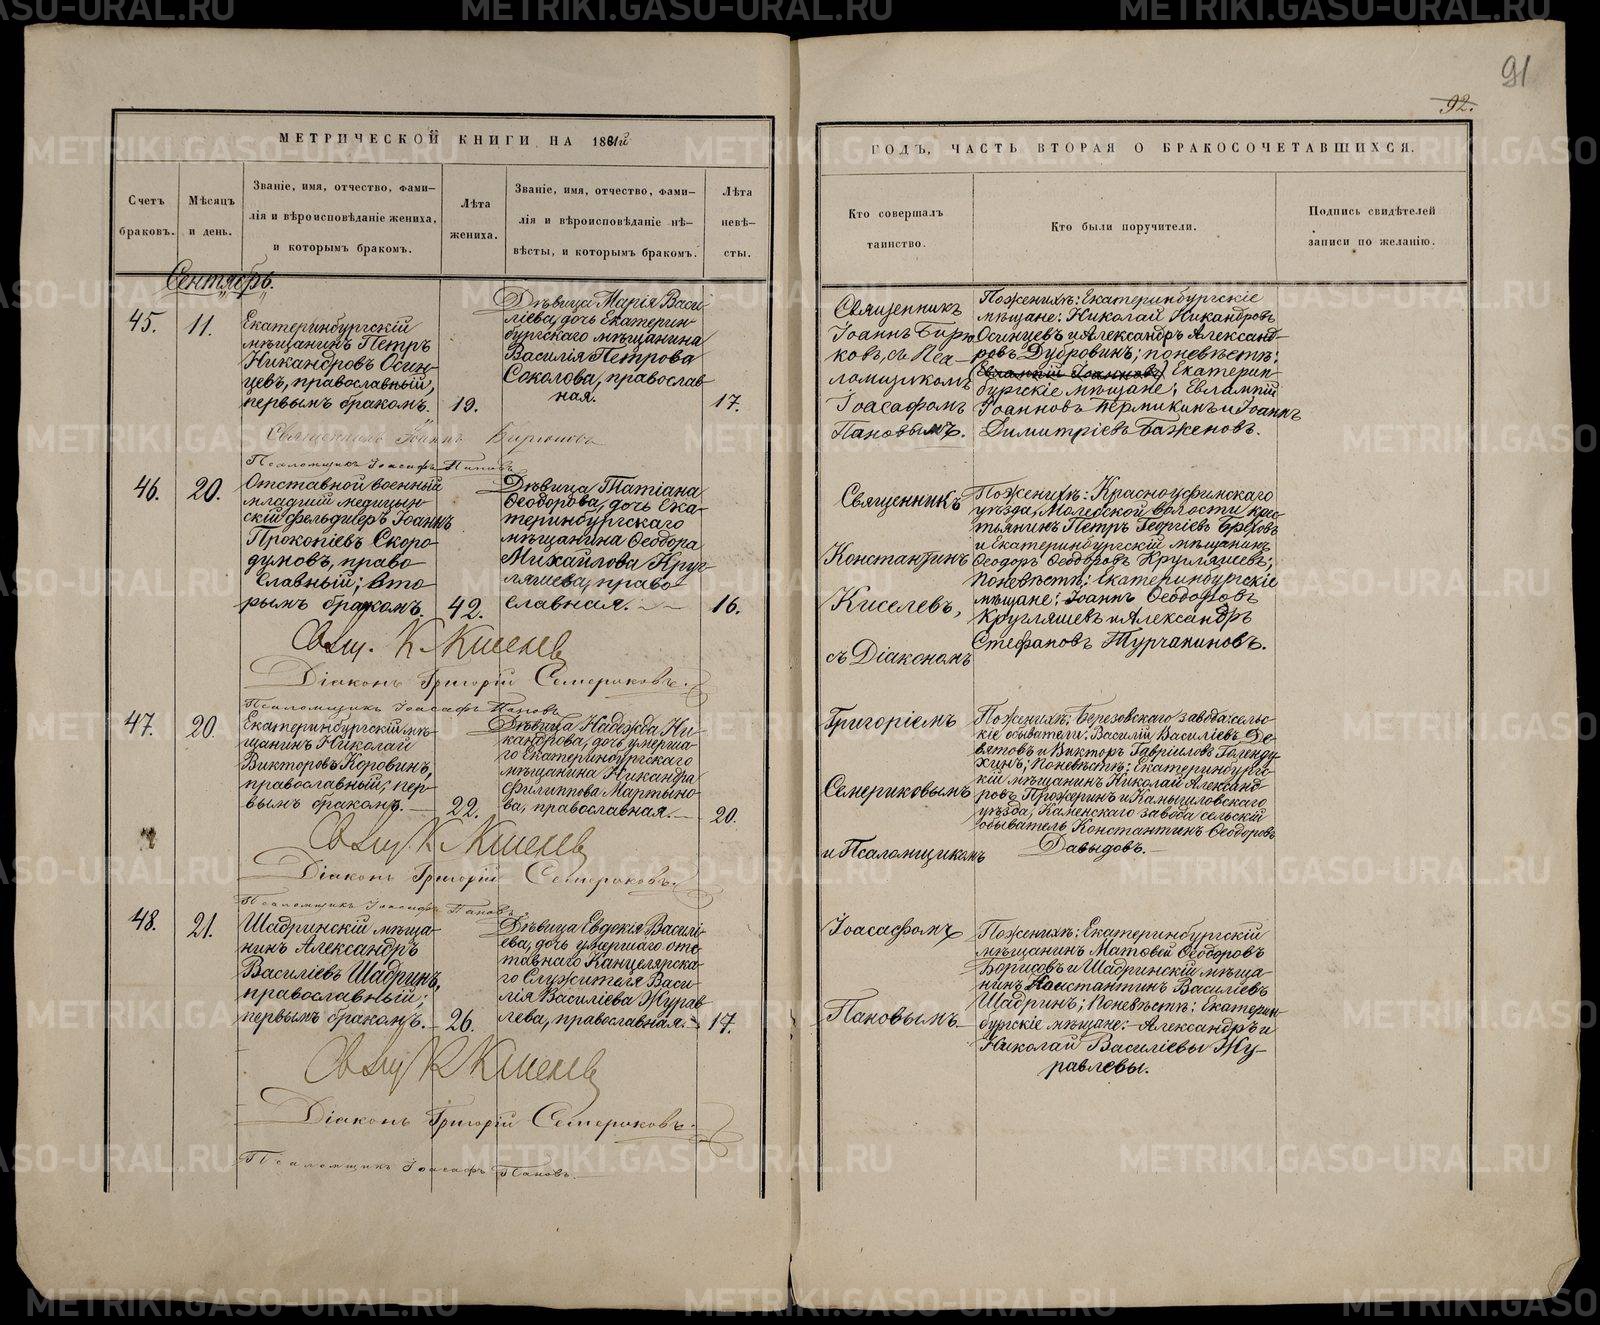 91
92.
МЕТРИЧЕСКОЙ КНИГИ НА 1881й
ГОДЪ, ЧАСТЬ ВТОРАЯ О БРАКОСОЧЕТАВШИХСЯ.
Счетъ
браковъ.
Мѣсяцъ
и день.
Званіе, имя, отчество, фами-
лія и вѣроисповѣданіе жениха,
и которымъ бракомъ.
Лѣта
жениха.
Званіе, имя, отчество, фами-
лія и вѣроисповѣданіе не-
вѣсты, и которымъ бракомъ.
Лѣта
невѣ-
сты.
Кто совершалъ
таинство.
Кто были поручители.
Подпись свидѣтелей
записи по желанію.
Сентябрь.
45.
11.
Екатеринбургскій
мѣщанинъ Петръ
Никандровъ Осин-
цевъ, православный,
первымъ бракомъ.
19.
Дѣвица Марія Васи-
ліева, дочь Екатерин-
бургскаго мѣщанина
Василія Петрова
Соколова, православ-
ная.
17.
Священникъ
Іоаннъ Бирю-
ковъ, съ Пса-
ломщикомъ
Іоасафомъ
Пановымъ.
По женихѣ: Екатеринбургскіе
мѣщане: Николай Никандровъ
Осинцевъ и Александръ Александ-
ровъ Дубровинъ; по невѣстѣ:
(Евлампій Іоанновъ) Екатерин-
бургскіе мѣщане; Евлампій
Іоанновъ Пермикинъ и Іоаннъ
Димитріевъ Баженовъ.
Священникъ Іоаннъ Бирюковъ
Псаломщикъ Іоасафъ Пановъ
46.
20.
Отставной военный
младшій медицин-
скій фельдшеръ Іоаннъ
Прокопіевъ Скоро-
думовъ, право-
славный; вто-
рымъ бракомъ
42.
Дѣвица Татіана
Ѳеодорова, дочь Ека-
теринбургскаго
мѣщанина Ѳеодора
Михайлова Круг-
ляшева, право-
славная.
16.
Священникъ
Константинъ
Киселевъ,
съ Діакономъ
По женихѣ: Красноуфимскаго
уѣзда, Молебской волости крес-
тьянинъ Петръ Георгіевъ Ореховъ
и Екатеринбургскій мѣщанинъ
Ѳеодоръ Ѳеодоровъ Кругляшевъ;
По невѣстѣ: Екатеринбургскіе
мѣщане: Іоаннъ Ѳеодоровъ
Кругляшевъ и Александръ
Стефановъ Турчаниновъ.
Свящ. К. Киселевъ
Діаконъ Григорій Семериковъ.
Псаломщикъ Іоасафъ Пановъ
47.
20.
Екатеринбургскій мѣ-
щанинъ Николай
Викторовъ Коровинъ,
православный; пер-
вымъ бракомъ.
22.
Дѣвица Надежда Ни-
кандрова, дочь умерша-
го Екатеринбургскаго
мѣщанина Никандра
Филиппова Мартыно-
ва, православная.
20.
Григоріемъ
Семериковымъ
и Псаломщикомъ
По женихѣ; Березовскаго завода сельс-
кіе обыватели: Василій Василіевъ Де-
вятовъ и Викторъ Гавріиловъ Голенду-
хинъ; По невѣстѣ: Екатеринбургс-
кій мѣщанинъ Николай Александ-
ровъ Прожеринъ и Камышловскаго
уѣзда, Каменскаго завода сельскій
обыватель Константинъ Ѳеодоровъ
Давыдовъ.
Свящ. К. Киселевъ
Діаконъ Григорій Семериковъ.
Псаломщикъ Іоасафъ Пановъ
48.
21.
Шадринскій мѣща-
нинъ Александръ
Василіевъ Шадринъ,
православный;
первымъ бракомъ.
26.
Дѣвица Евдокія Василі-
ева, дочь умершаго отс-
тавнаго Канцелярска-
го Служителя Васи-
лія Василіева Журав-
лева, православная.
17.
Іоасафомъ
Пановымъ
По женихѣ: Екатеринбургскій
мѣщанинъ Матовей Ѳеодоровъ
Борисовъ и Шадринскій мѣща-
нинъ Константинъ Василіевъ
Шадринъ; По невѣстѣ: Екатерин-
бургскіе мѣщане: Александръ и
Николай Василіевы Жу-
равлевы.
Свящ. К. Киселевъ
Діаконъ Григорій Семериковъ.
Псаломщикъ Іоасафъ Пановъ.
METRIKI.GASO-URAL.RU